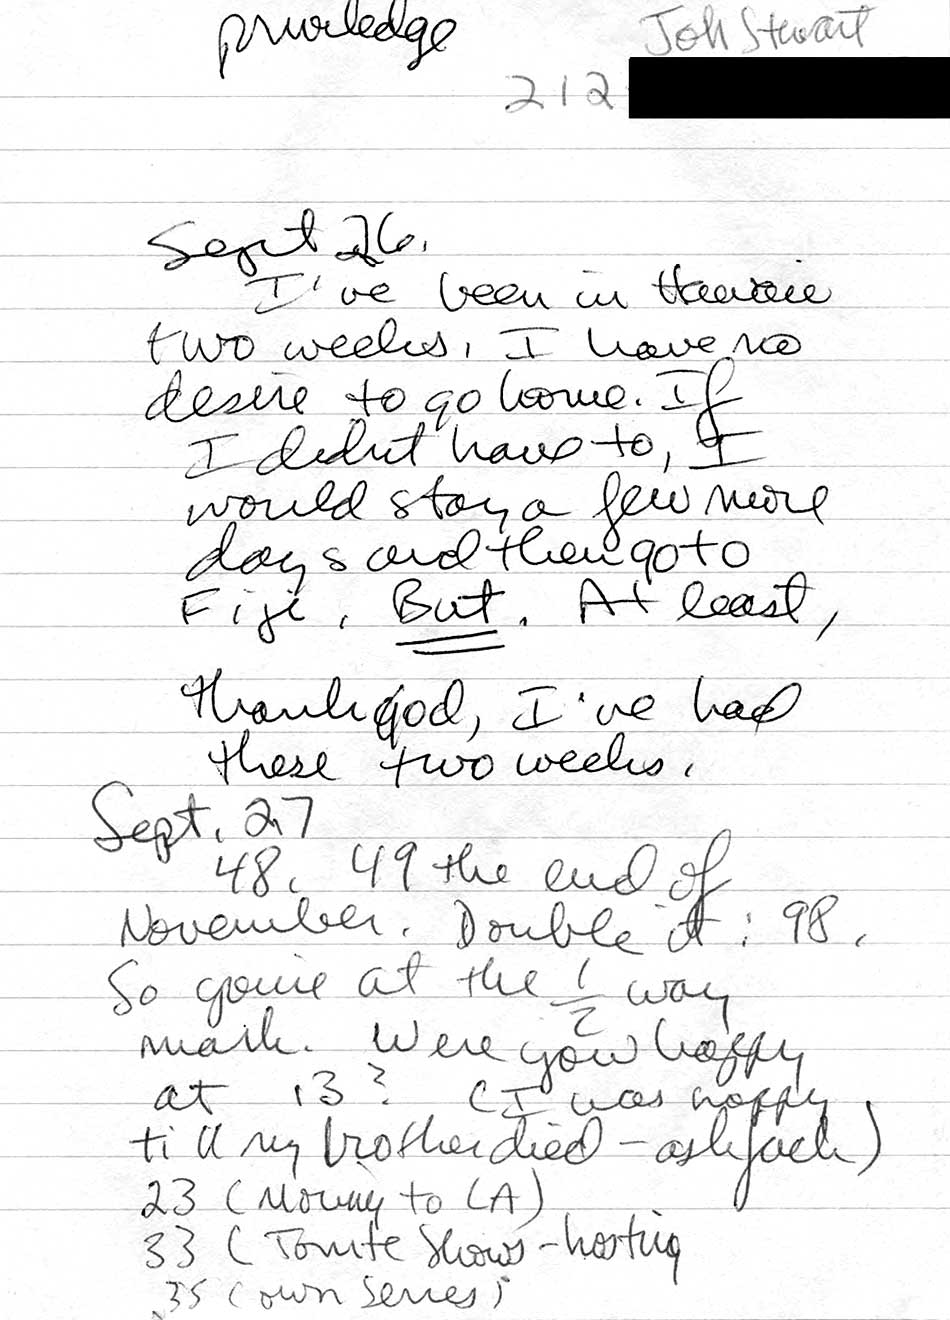 priviledge
Joh Stewart
212
Sept 26.
I've been in Hawaii
two weeks. I have no
desire to go home. If
I didn't have to, I
would stay a few more
days and then go to
Fiji. But. At least,
thank god, I've had
these two weeks.
Sept. 27
48. 49 the end of
November. Double it: 98.
So you're at the 1/2 way
mark. Were you happy
at 13? (I was happy
till my brother died - ask Jack)
23 (Moving to LA)
33 (Tonite Shows - hosting
35 (own series)